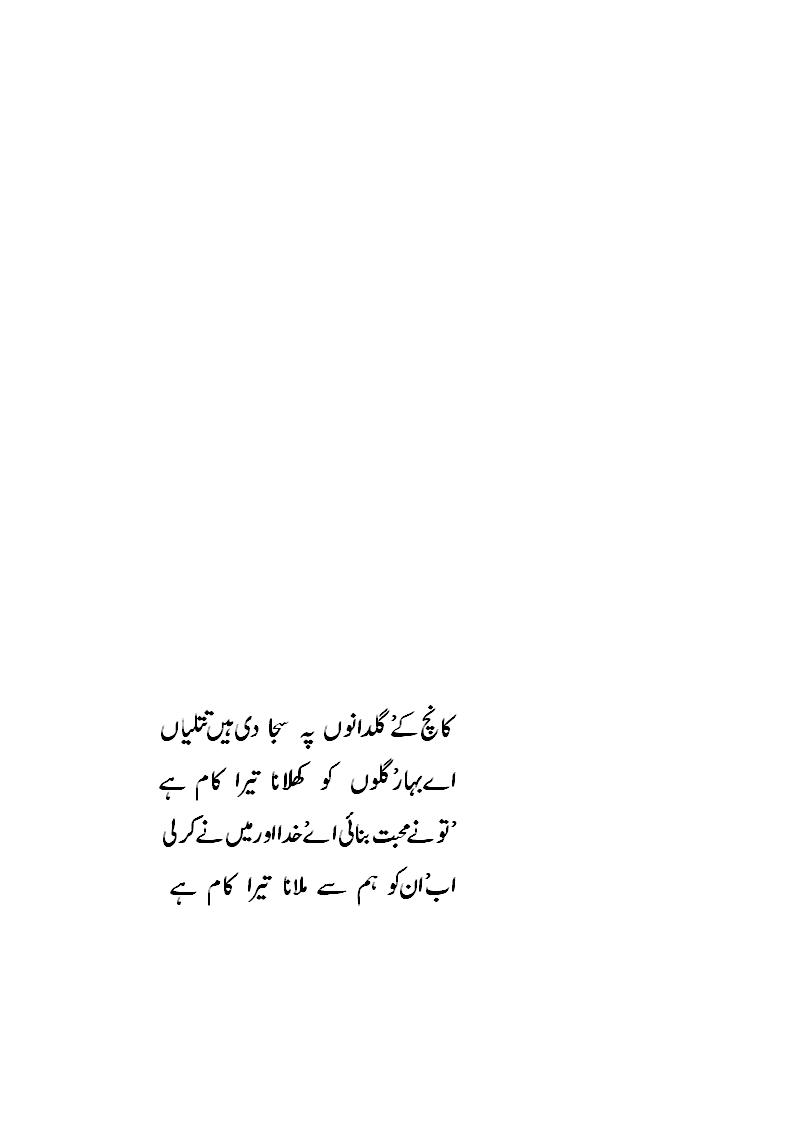 کانچ کے گُلدانوں پہ سجا دی ہیں تتلیاں
اے بہار گُلوں کو کھلانا تیرا کام ہے
تُو نے محبت بنائی اے خُدا اور میں نے کر لی
اب اُن کو ہم سے ملانا تیرا کام ہے